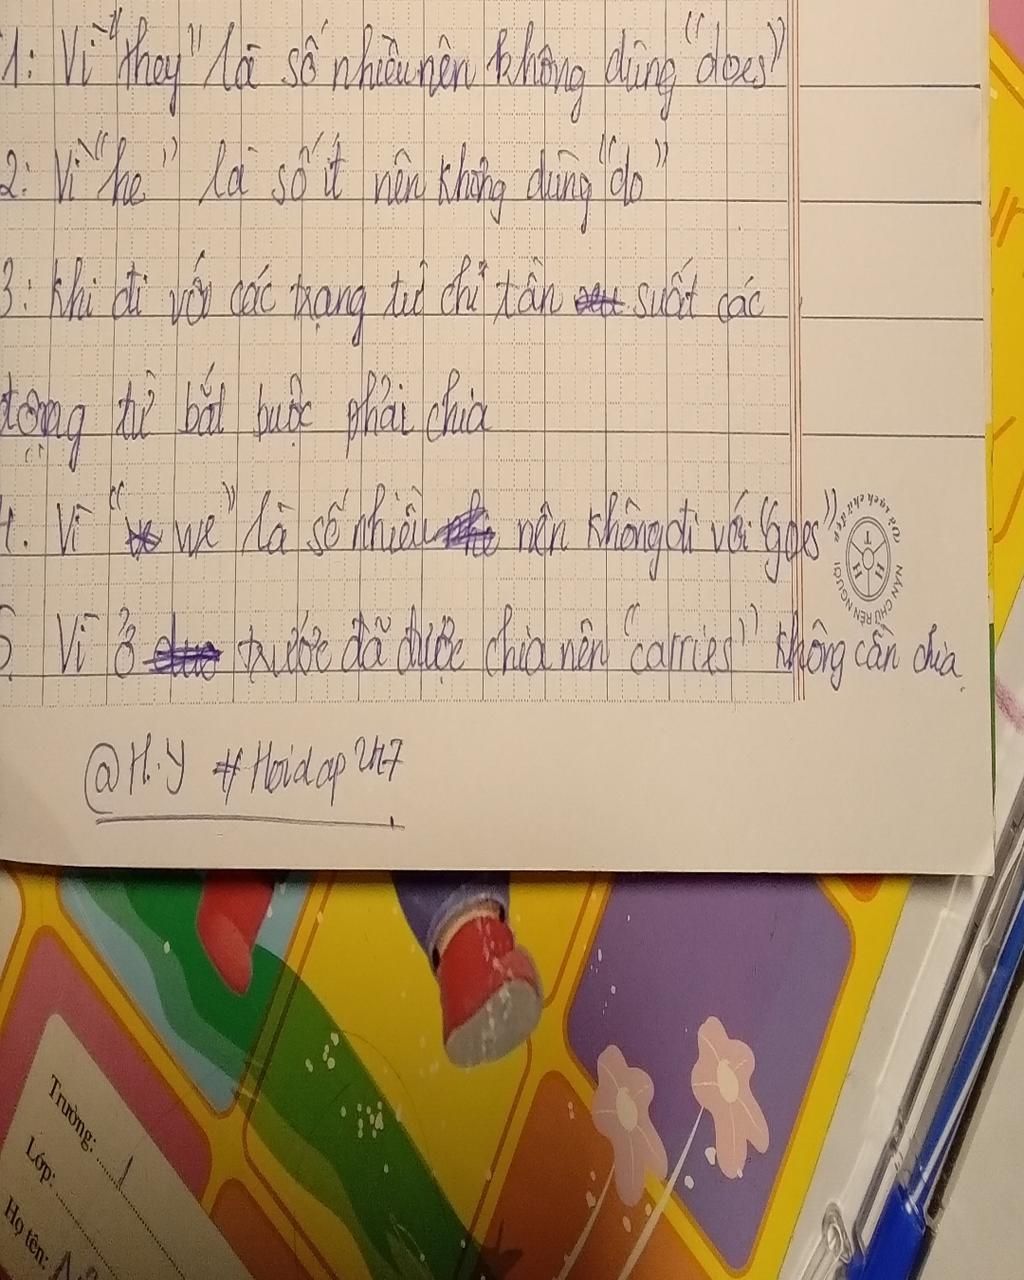 1: Vì "they" là số nhiều nên không dùng "does"
2: Vì "he" là số ít nên không dùng "do"
3: Khi đi với các trạng từ chỉ tần suất các
động từ bắt buộc phải chia
4. Vì "we" là số nhiều nên không đi với "goes"
5 Vì ở trước đã được chia nên "carries" không cần chia.
NẮN CHỮ RÈN NGƯỜI
T
H H
@H.Y #Hoidap247
Trường:
Lớp:
Họ tên: